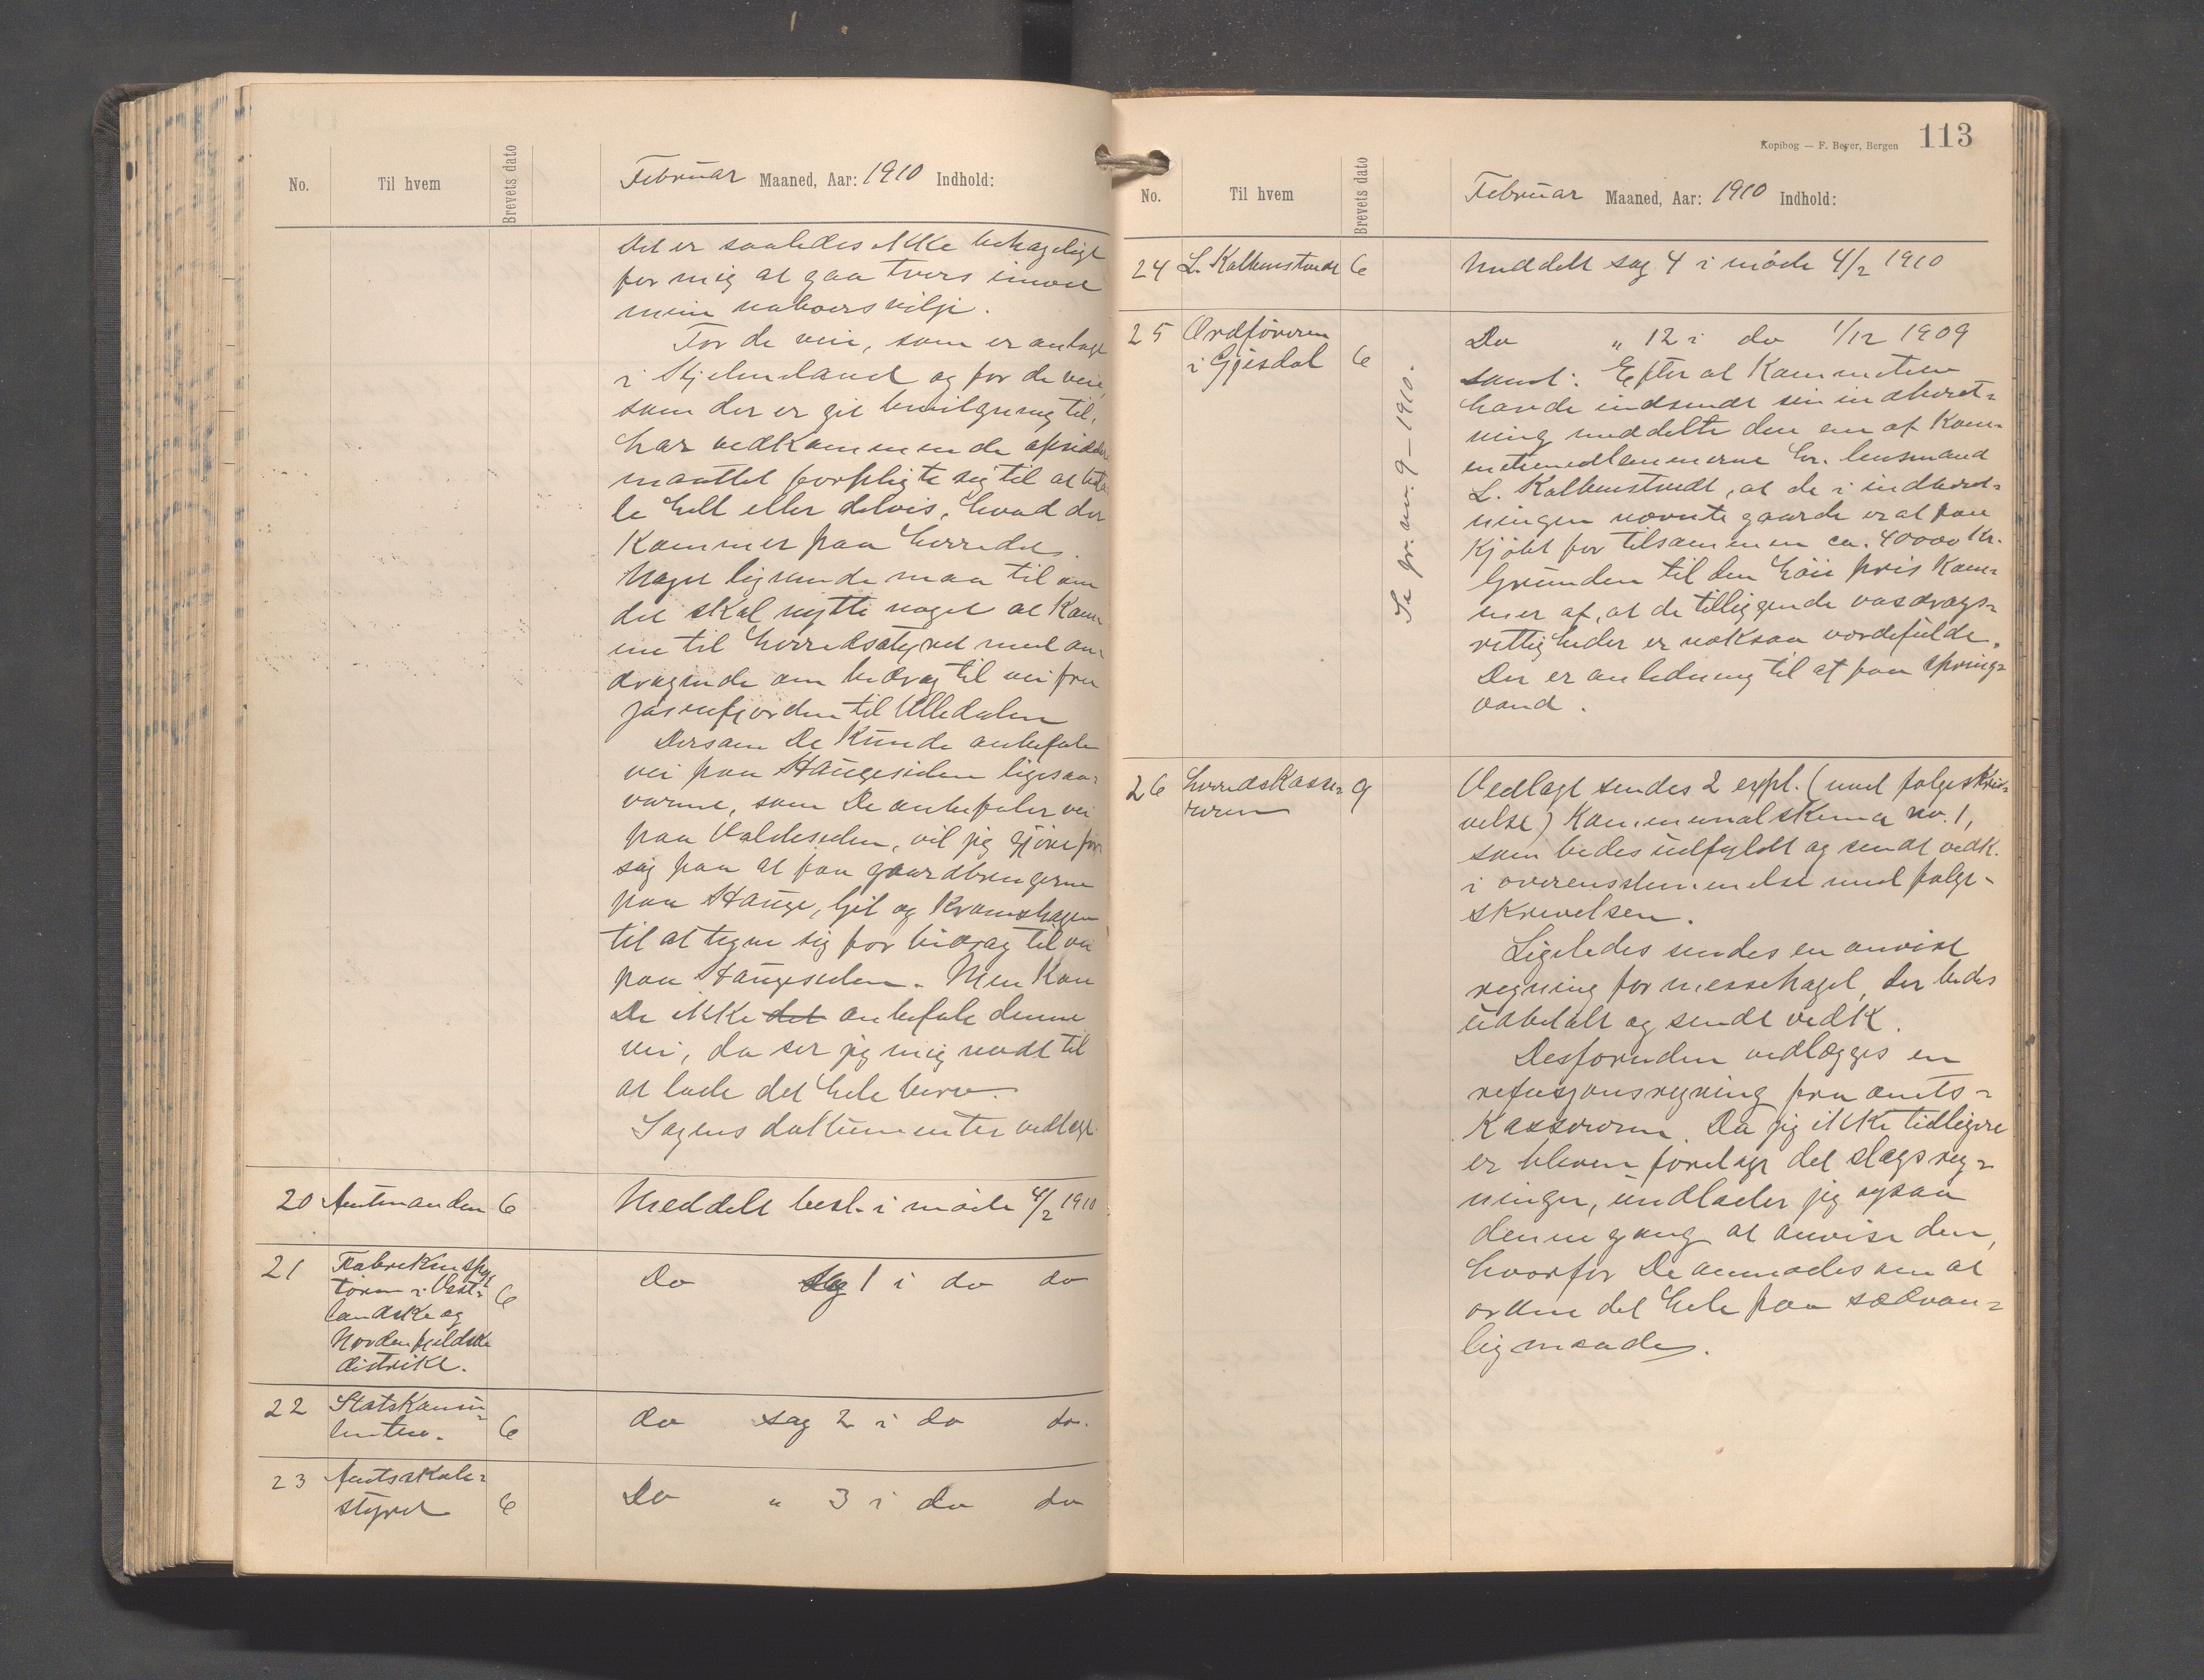 No. Til hvem Brevets dato Februar Maaned, Aar: 1910 Indhold:
Det er saaledes ikke behageligt
for mig at gaa tvers imod
mine naboers vilje.
For de veie, som er anlagt
i Skjelmeland og for de veie,
som der er git bevilgning til,
har vedkommende opsiddere
maattet forpligte sig til at beta-
le helt eller delvis, hvad der
kommer paa herredet.
Noget lignende maa til om
det skal nytte noget at kom-
me til herredsstyret med an-
dragende om bidrag til vei fra
Jøsenfjorden til Ulledalen
Dersom De kunde anbefale
vei paa Haugesiden ligesaa
varmt, som De anbefaler vei
paa Valdesiden, vil jeg gjøre for-
søg paa at faa gaardbrugerne
paa Hauge, Gjil og Kvamshagen
til at tegne sig for bidrag til vei
paa Haugesiden. Men kan
De ikke det anbefale denne
vei, da ser jeg mig nødt til
at lade det hele bero.
Sagens dokumenter vedlagt.
20 Amtmanden 6 Meddelt besl. i møde 4/2 1910
21 Fabrikinspek
tøren i Vest- 6 Do sag 1 i do do
landske og
Nordenfjeldske
distrikt.
22 Statskonsu-
lenten. 6 do sag 2 i do do.
23 Amtsskole-
styret 6 Do " 3 i do do
Kopibog — F. Beyer, Bergen 113
No. Til hvem Brevets dato Februar Maaned, Aar: 1910 Indhold:
24 L. Kolbenstvedt 6 Meddelt sag 4 i møde 4/2 1910
25 Ordføreren
i Gjesdal 6 Do " 12 i do 1/12 1909
Se jr. nr. 9 – 1910.
samt: Efter at Kommiteen
havde indsendt sin indberet-
ning meddelte den ene af kom-
iteemedlemmerne hr. lensmand
L. Kolbenstvedt, at de i indberet-
ningen nævnte gaarde er at faa
kjøbt for tilsammen ca. 40000 kr.
Grunden til den høie pris kom-
mer af, at de tilliggende vasdrags-
rettigheder er noksaa værdifulde.
Der er anledning til at faa spring-
vand.
26 Herredskasse-
reren 9 Vedlagt sendes 2 expl. (med følgeskri-
velse) Kommunalskema no. 1,
som bedes udfyldt og sendt vedk.
i overensstemmelse med følge-
skrivelsen.
Ligeledes sendes en anvist
regning for messehagel, der bedes
udbetalt og sendt vedk.
Desforuden vedlægges en
refusjonsregning fra amts-
kassereren. Da jeg ikke tidligere
er bleven forelagt det slags reg-
ninger, undlader jeg ogsaa
denne gang at anvise den,
hvorfor De anmodes om at
ordne det hele paa sædvan-
lig maade.